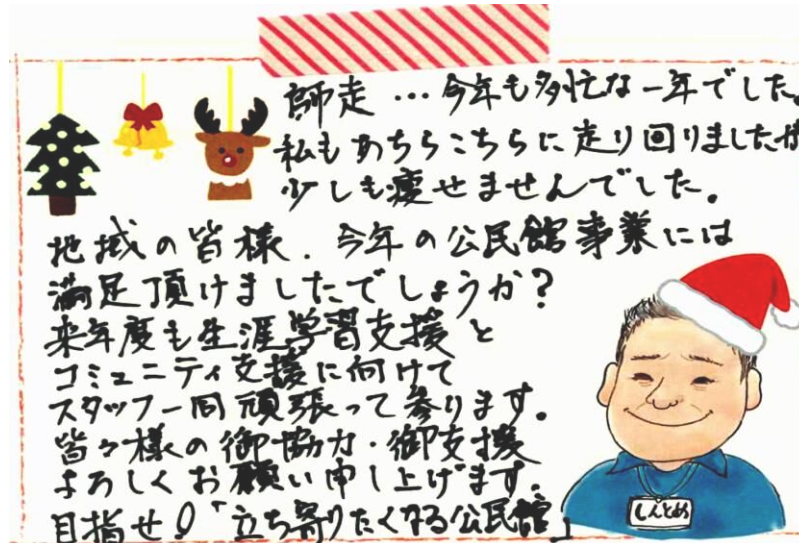 師走…今年も多忙な一年でした。
私もあちらこちらに走り回りましたが
少しも痩せませんでした。
地域の皆様.今年の公民館事業には
満足頂けましたでしょうか?
来年度も生涯学習支援と
コミュニティ支援に向けて
スタッフ一同頑張って参ります。
皆々様の御協力・御支援
よろしくお願い申し上げます。
目指せ!「立ち寄りたくなる公民館」
しんとめ